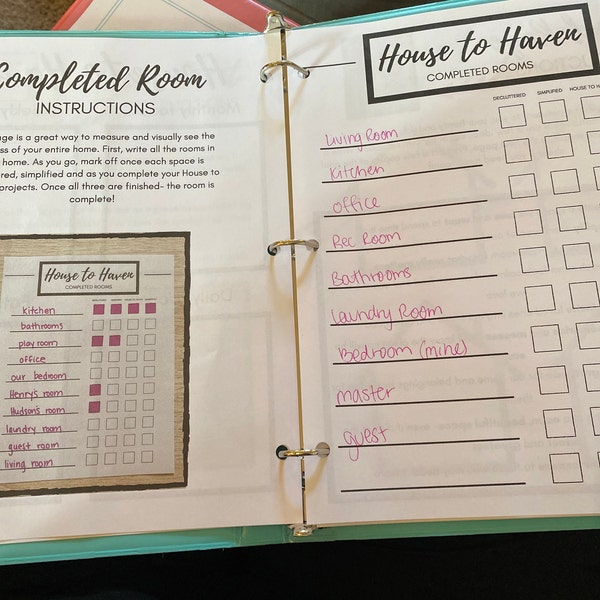 Completed Room
INSTRUCTIONS
age is a great way to measure and visually see the
ss of your entire home. First, write all the rooms in
home. As you go, mark off once each space is
red, simplified and as you complete your House to
projects. Once all three are finished- the room is
complete!
House to Haven
COMPLETED ROOMS
kitchen
bathrooms
play room
office
our bedroom
Henry's room
Hudson's room
laundry room
guest room
living room
House to Haven
COMPLETED ROOMS
DECLUTTERED SIMPLIFIED HOUSE TO H
Living Room
Kitchen
office
Rec Room
Bathrooms
Laundry Room
Bedroom (mine)
master
guest